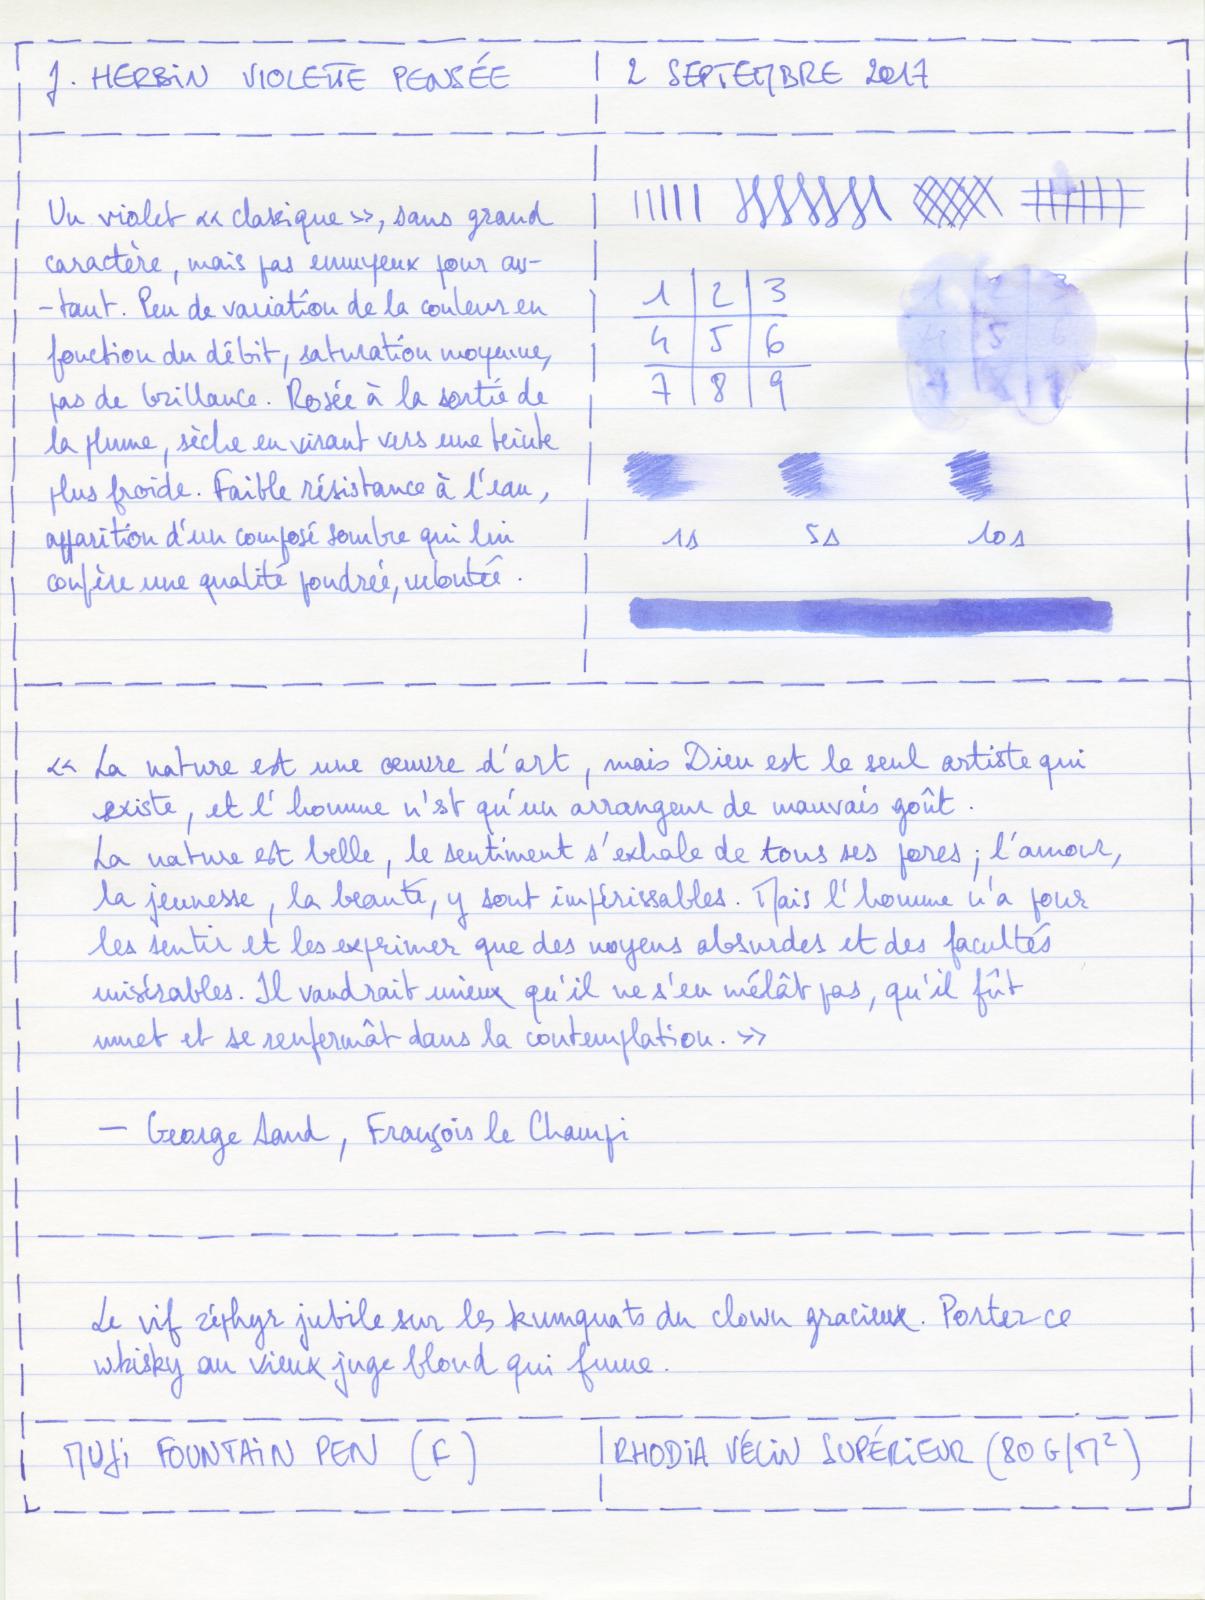 J. HERBIN VIOLETTE PENSÉE
2 SEPTEMBRE 2017
Un violet « classique », sans grand
caractère, mais pas ennuyeux pour au-
-tant. Peu de variation de la couleur en
fonction du débit, saturation moyenne,
pas de brillance. Rosée à la sortie de
la plume, sèche en virant vers une teinte
plus froide. Faible résistance à l'eau,
apparition d'un composé sombre qui lui
confère une qualité poudrée, veloutée.
1 2 3
4 5 6
7 8 9
1 2 3
4 5 6
7 8 9
1s 5s 10s
« La nature est une œuvre d'art, mais Dieu est le seul artiste qui
existe, et l'homme n'est qu'un arrangeur de mauvais goût.
La nature est belle, le sentiment s'exhale de tous ses pores ; l'amour,
la jeunesse, la beauté, y sont impérissables. Mais l'homme n'a pour
les sentir et les exprimer que des moyens absurdes et des facultés
misérables. Il vaudrait mieux qu'il ne s'en mêlât pas, qu'il fût
muet et se renfermât dans la contemplation. »
— George Sand, François le Champi
Le vif zéphyr jubile sur les kumquats du clown gracieux. Portez ce
whisky au vieux juge blond qui fume.
MUJI FOUNTAIN PEN (F)
RHODIA VÉLIN SUPÉRIEUR (80 G/M²)